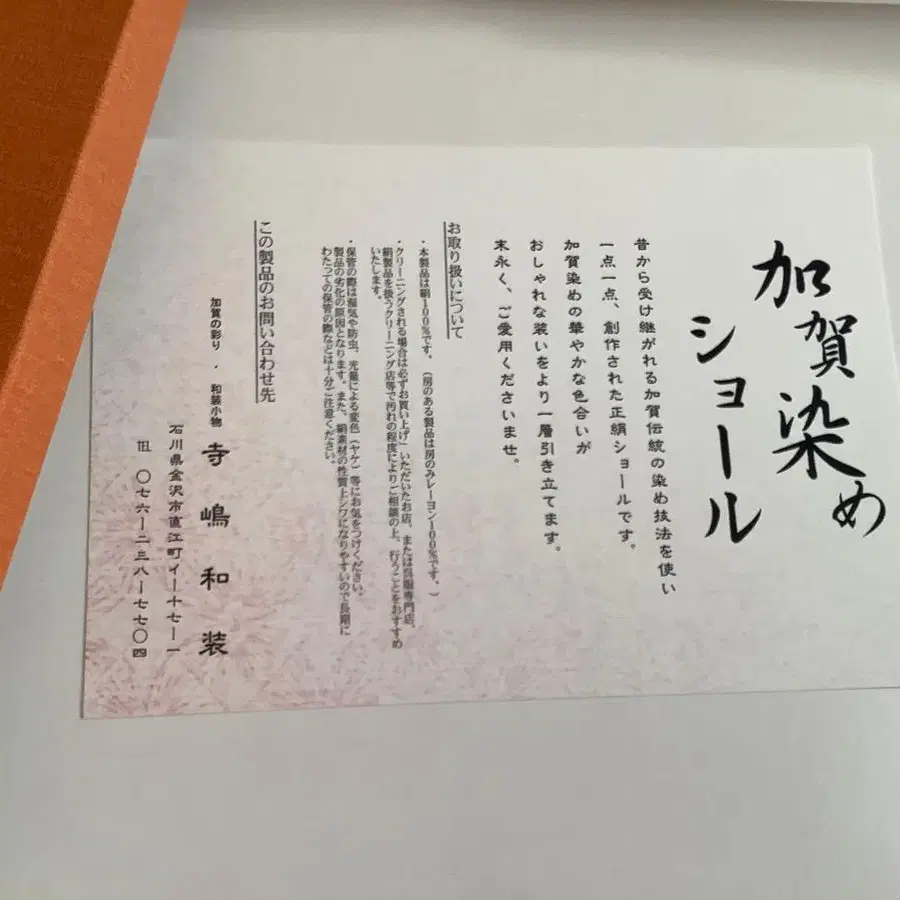 加賀染め
ショール
昔から受け継がれる加賀伝統の染め技法を使い
一点一点、創作された正絹ショールです。
加賀染めの華やかな色合いが
おしゃれな装いをより一層引き立てます。
末永く、ご愛用くださいませ。
お取り扱いについて
・本製品は絹100%です。(房のある製品は房のみレーヨン100%です。)
・クリーニングされる場合は必ずお買い上げいただいたお店、または呉服専門店、
絹製品を扱うクリーニング店等で汚れの程度によりご相談の上、行うことをおすすめ
いたします。
・保管の際は湿気や防虫、光量による変色(ヤケ)等にお気をつけください。
製品の劣化の原因となります。また、絹素材の性質上シワになりやすいので長期に
わたっての保管の際などは十分ご注意ください。
この製品のお問い合わせ先
加賀の彩り・和装小物 寺嶋和装
石川県金沢市直江町イー十七ー一
℡ 〇七六ー二三八ー七七〇四